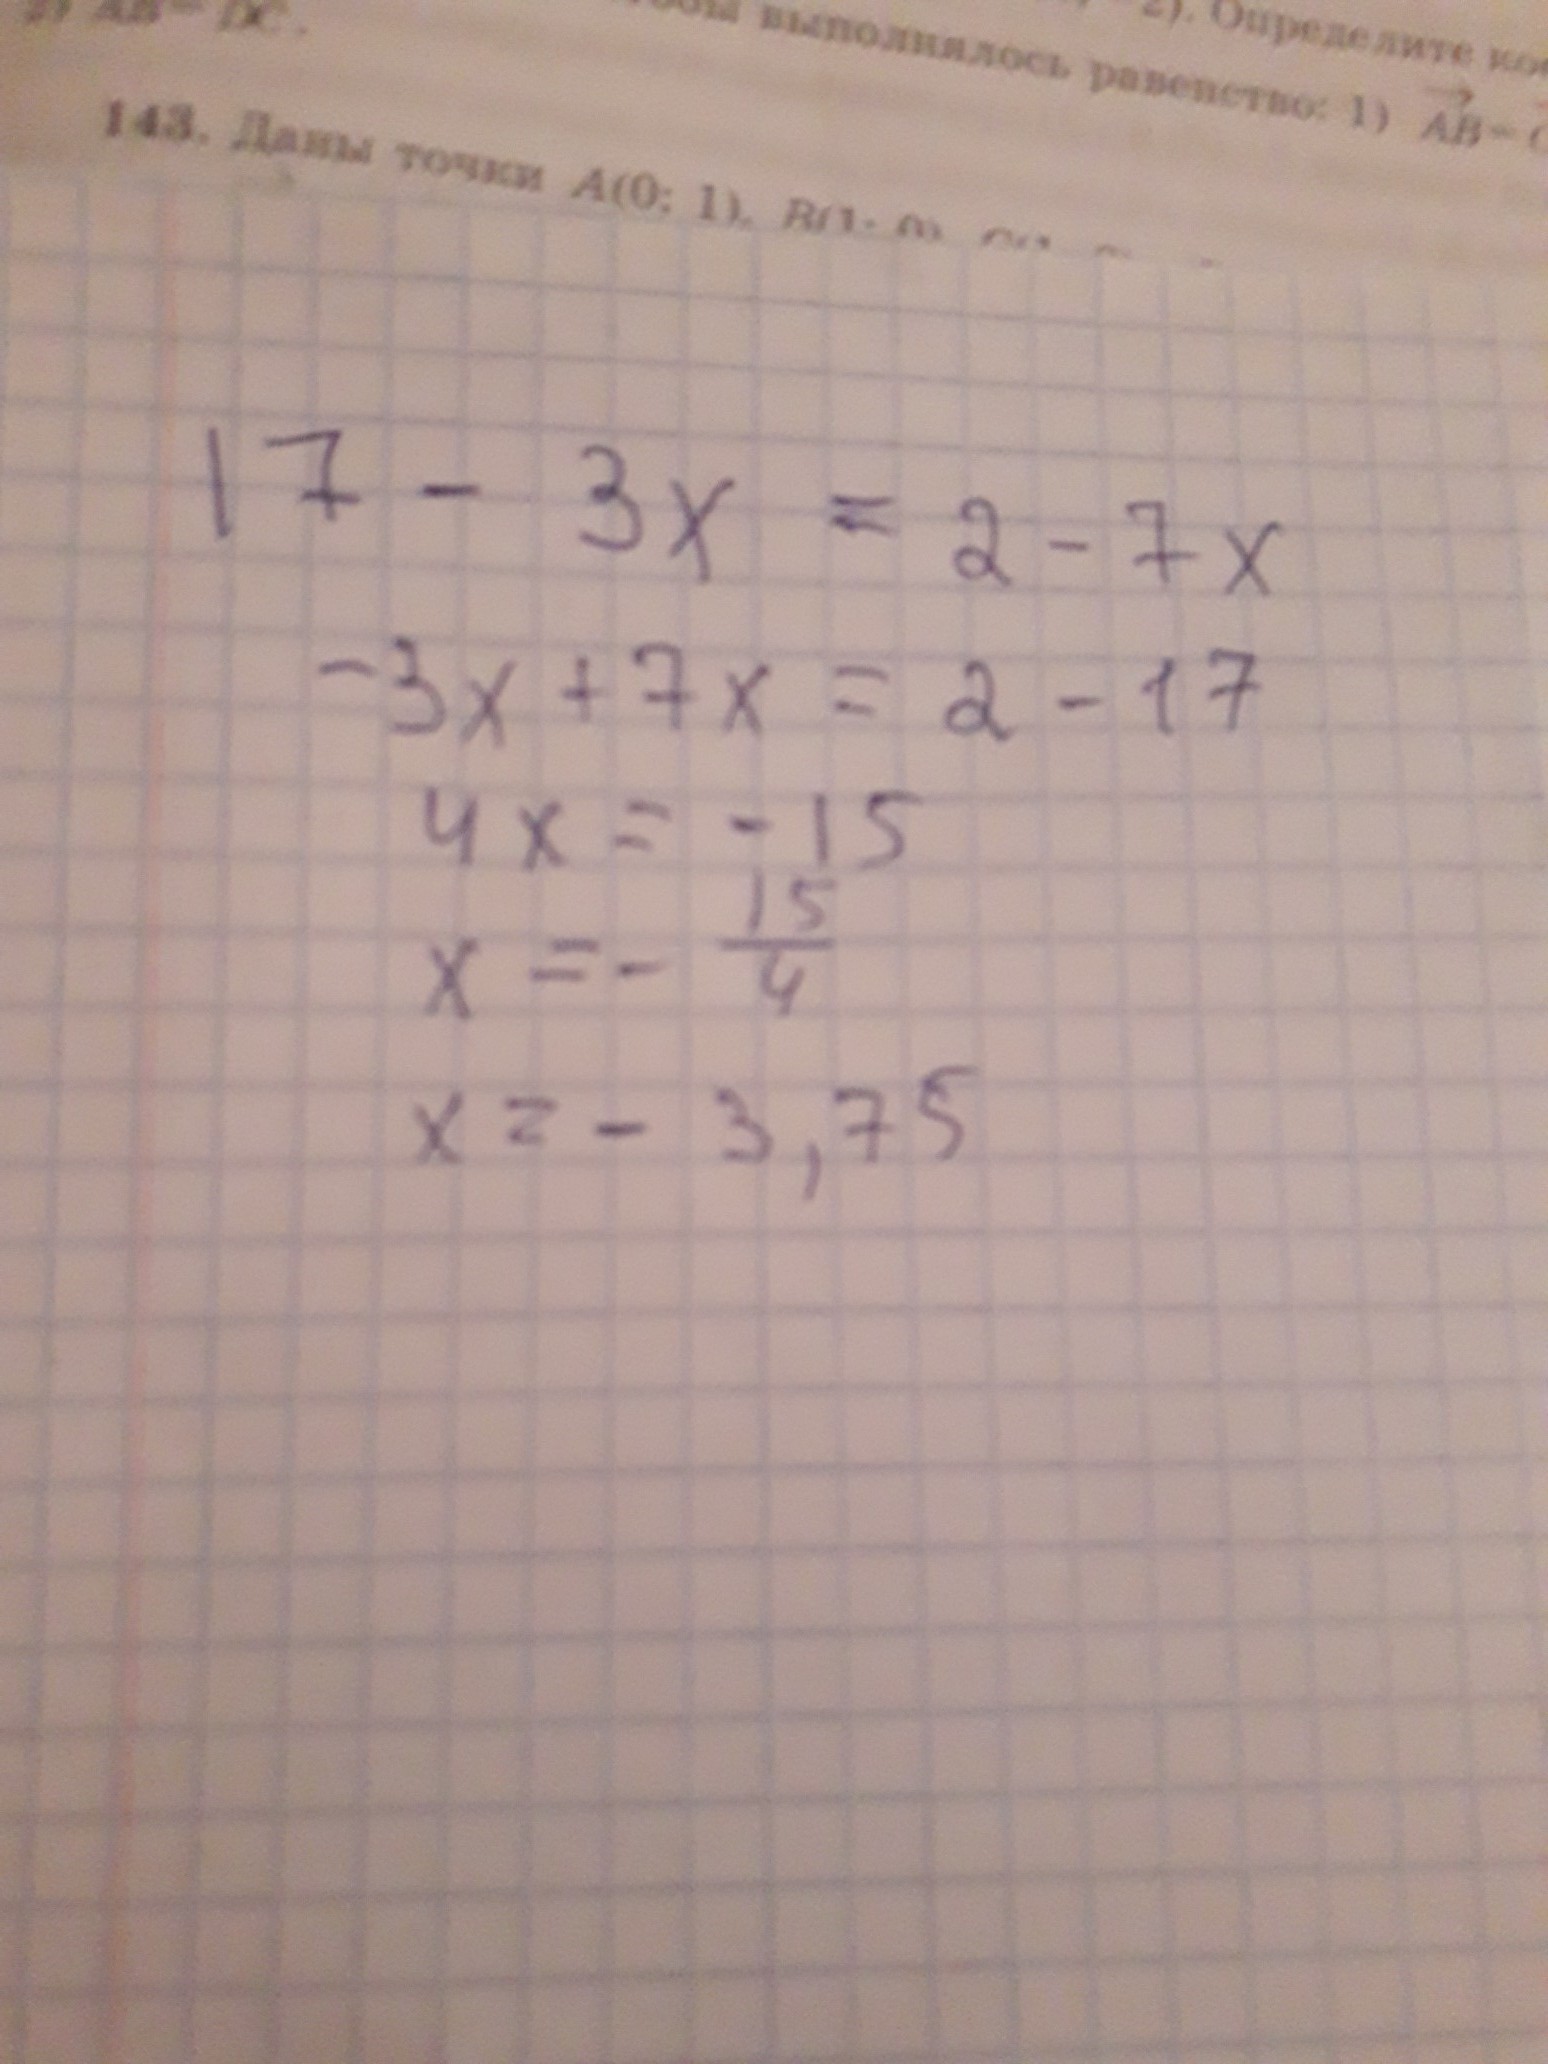 2). Определите
выполнялось равенство: 1) AB =
2) AB = DC.
143. Даны точки A(0; 1), B(1; 0),
17 - 3x = 2 - 7x
-3x + 7x = 2 - 17
4x = -15
x = - 15/4
x = - 3,75